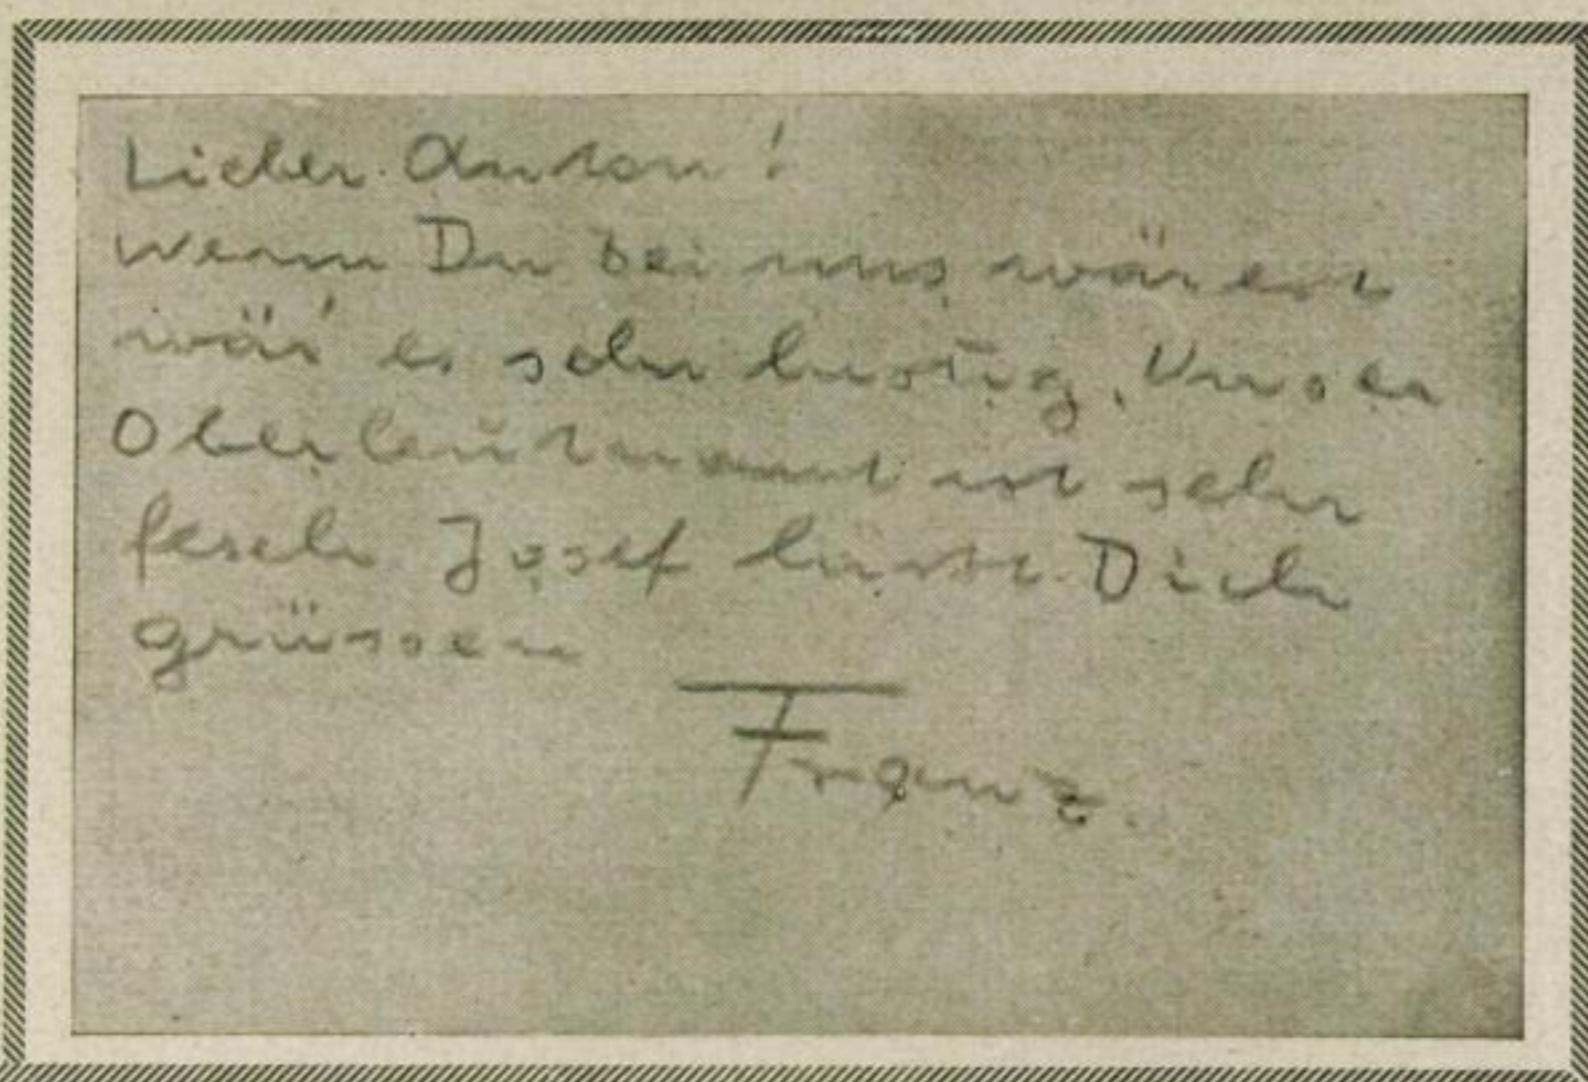 Lieber Anton!
wenn Du bei uns wärest
wär' es sehr lustig. Unser
Oberleutnant ist sehr
fesch Josef lässt Dich
grüssen
Franz.